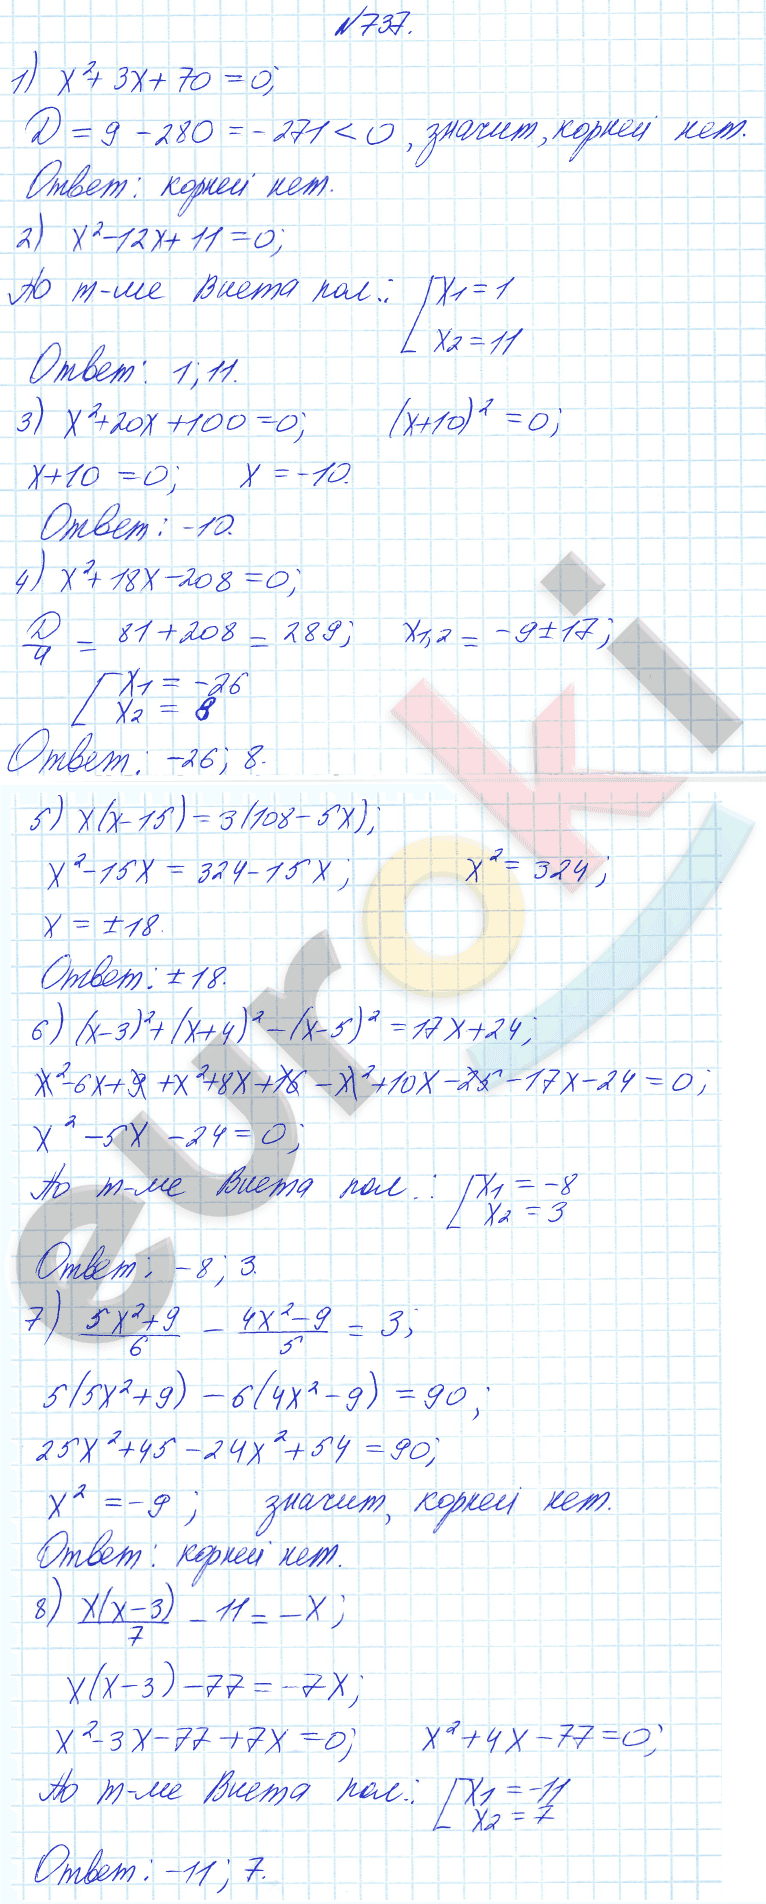 №737.
1) x²+3x+70=0;
D=9-280=-271<0, значит, корней нет.
Ответ: корней нет.
2) x²-12x+11=0;
По т-ме Виета пол.: [x₁=1
x₂=11
Ответ: 1; 11.
3) x²+20x+100=0; (x+10)²=0;
x+10=0; x=-10.
Ответ: -10.
4) x²+18x-208=0;
D/4 = 81+208 = 289; x₁,₂ = -9±17;
[x₁ = -26
x₂ = 8
Ответ: -26; 8.
5) x(x-15)=3(108-5x);
x²-15x=324-15x; x²=324;
x=±18.
Ответ: ±18.
6) (x-3)²+(x+4)²-(x-5)²=17x+24;
x²-6x+9+x²+8x+16-x²+10x-25-17x-24=0;
x²-5x-24=0;
По т-ме Виета пол.: [x₁=-8
x₂=3
Ответ: -8; 3.
7) (5x²+9)/6 - (4x²-9)/5 = 3;
5(5x²+9)-6(4x²-9)=90;
25x²+45-24x²+54=90;
x²=-9; значит, корней нет.
Ответ: корней нет.
8) x(x-3)/7 - 11 = -x;
x(x-3)-77=-7x;
x²-3x-77+7x=0; x²+4x-77=0;
По т-ме Виета пол.: [x₁=-11
x₂=7
Ответ: -11; 7.
euroki